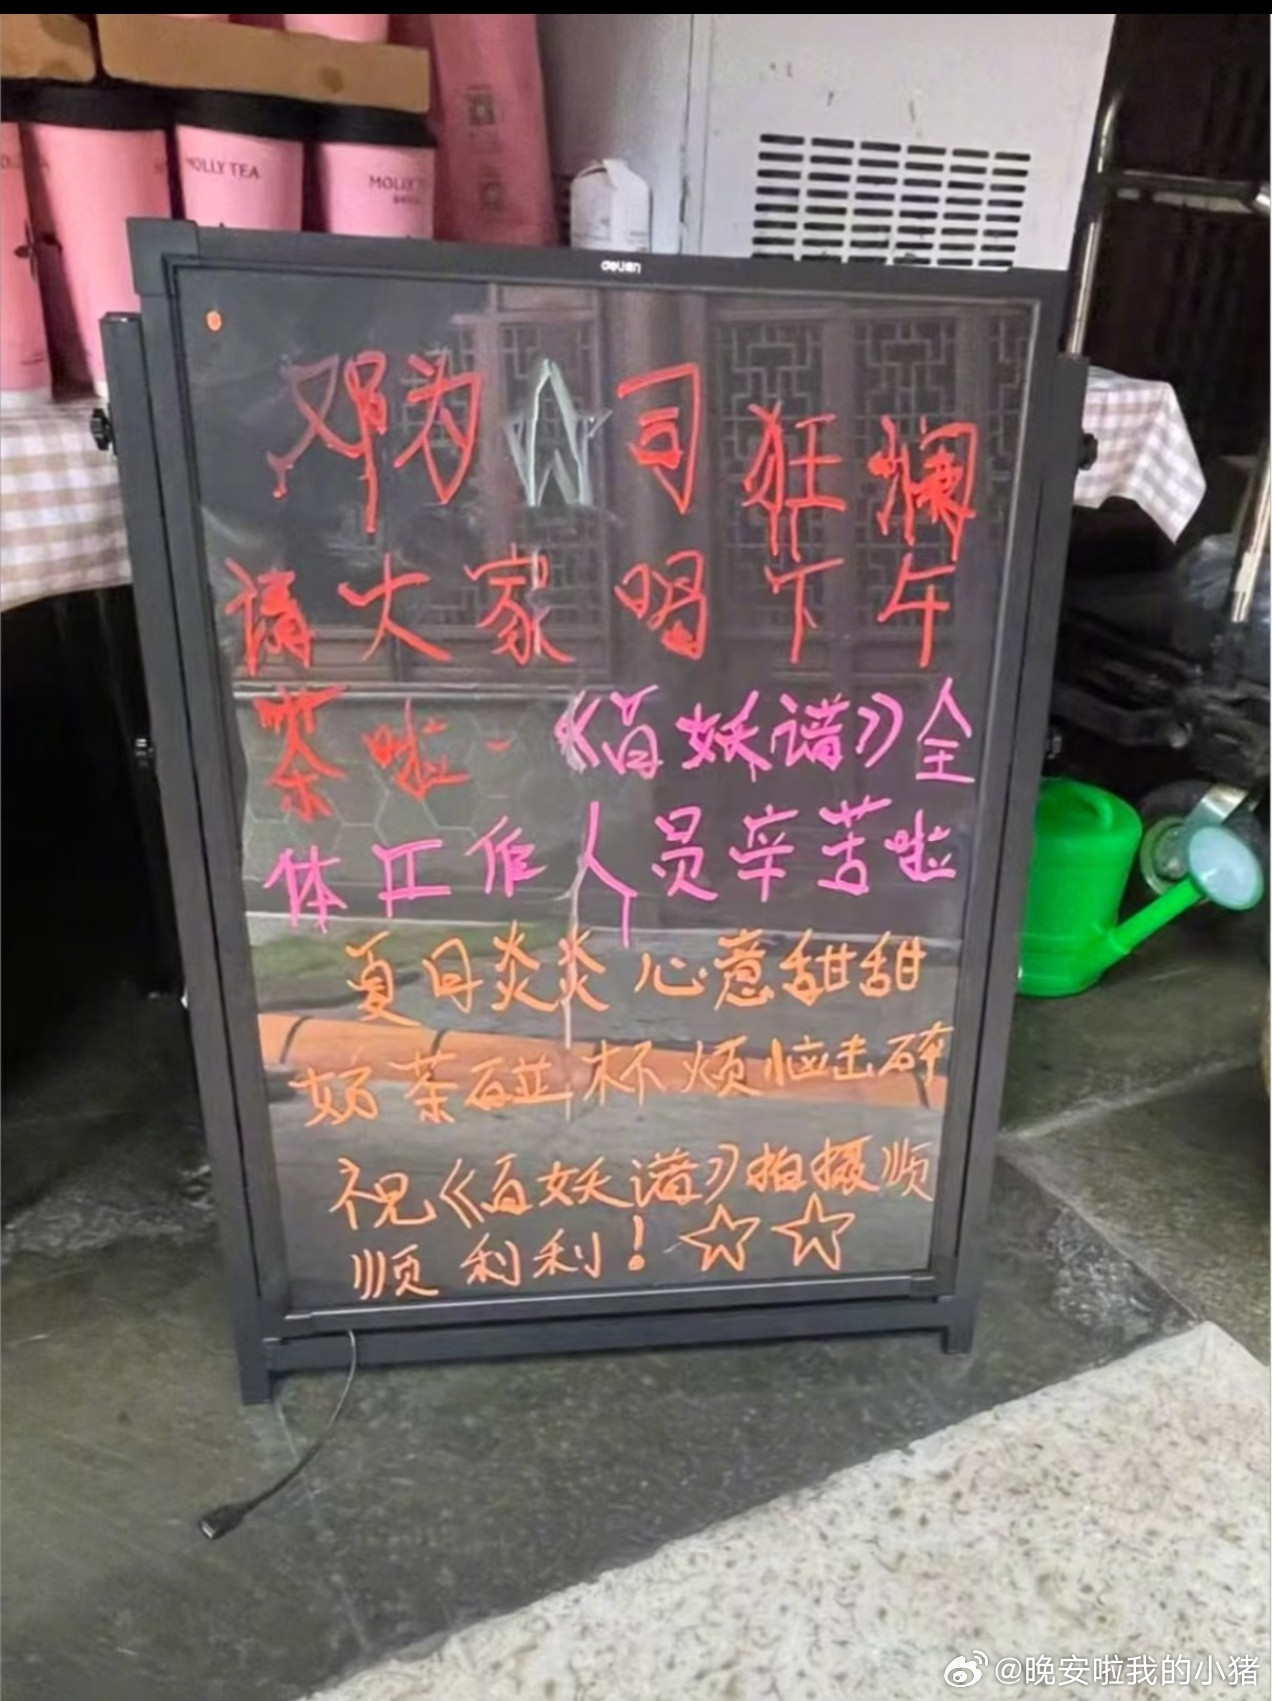 MOLLY TEA
MOLLY T
deli
邓为☆司狂澜
请大家喝下午
茶啦~《百妖谱》全
体工作人员辛苦啦
夏日炎炎 心意甜甜
奶茶碰杯 烦恼击碎
祝《百妖谱》拍摄顺
顺利利！☆☆
@晚安啦我的小猪